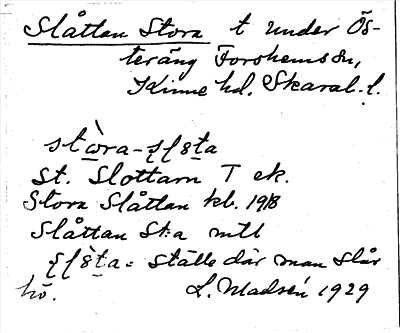 Slåttan Stora t under Ös-
teräng Forshems sn,
Kinne hd. Skarab. l.
stòra-
St. Slottarn T ek.
Stora Slåttan kb. 1918
Slåttan Sta mtl
= ställe där man slår
hö. L. Madsén 1929